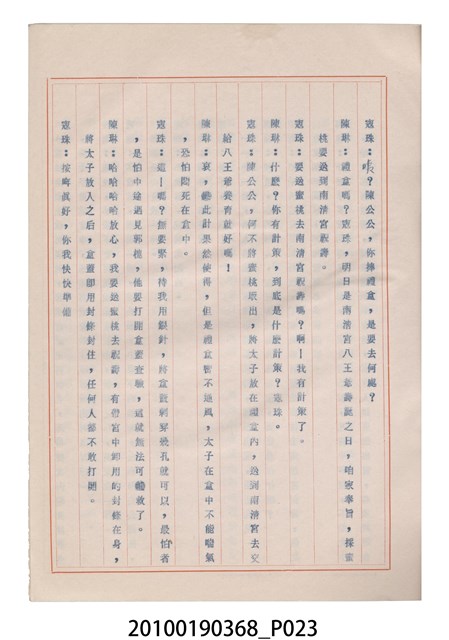 寇珠：咦？陳公公，你捧禮盒，是要去何處？
陳琳：禮盒嗎？寇珠，明日是南清宮八王爺壽誕之日，咱家奉旨，採蜜
桃要過到南清宮祝壽。
寇珠：要過蜜桃去南清宮祝壽嗎？啊！我有計策了。
陳琳：什麼？你有計策，到底是什麼計策？寇珠。
寇珠：陳公公，何不將蜜桃取出，將太子放在禮盒內，過到南清宮去交
給八王爺養育就好嗎！
陳琳：哀，此計果然使得，但是禮盒暫不通風，太子在盒中不能喘氣
，恐怕悶死在盒中。
寇珠：這！嗎？無要緊，待我用銀針，將盒戳刺穿幾孔就可以，最怕者
，是怕中途遇見郭槐，他要打開盒蓋查驗，這就無法可救了。
陳琳：哈哈哈哈放心，我要過蜜桃去祝壽，有帶宮中御用的封條在身，
將太子放入之後，盒蓋即用封條封住，任何人都不敢打開。
寇珠：按呣真好，你我快快準備
20100190368_P023